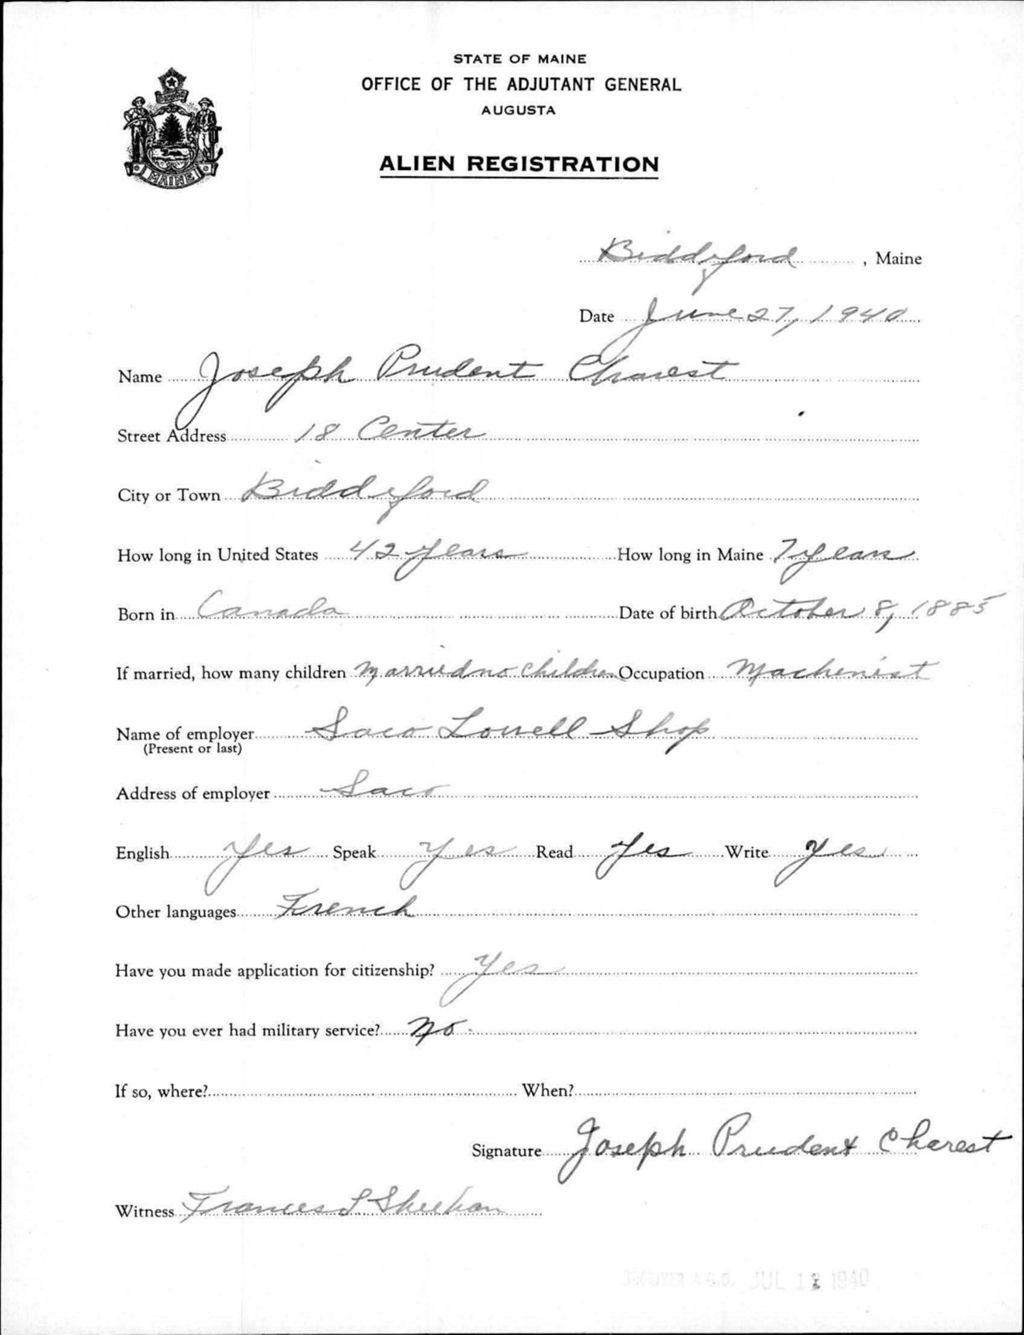 STATE OF MAINE
OFFICE OF THE ADJUTANT GENERAL
AUGUSTA
MAINE
ALIEN REGISTRATION
Biddeford, Maine
Date June 27, 1940
Name Joseph Prudent Charest
Street Address 18 Center
City or Town Biddeford
How long in United States 42 years How long in Maine 7 years
Born in Canada Date of birth October 8, 1885
If married, how many children Married no children Occupation Machenist
Name of employer Saco Lowell Shop
(Present or last)
Address of employer Saco
English Yes Speak Yes Read Yes Write Yes
Other languages French
Have you made application for citizenship? Yes
Have you ever had military service? No.
If so, where? When?
Signature Joseph Prudent Charest
Witness Frances L Sheehan
A.G.O. JUL 12 1940